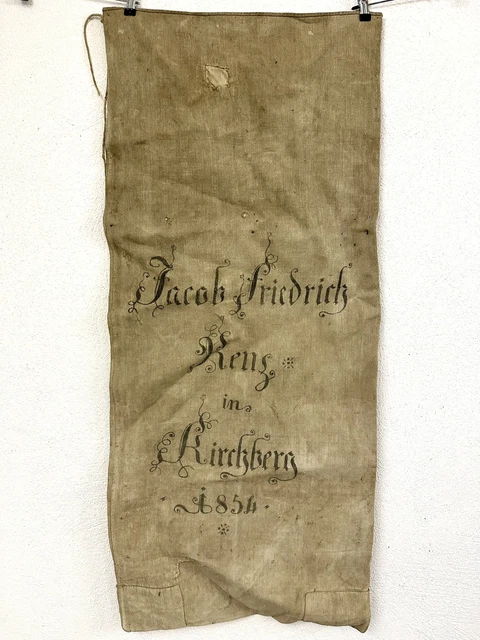 Jacob Friedrich
Renz
in
Kirchberg
1854.